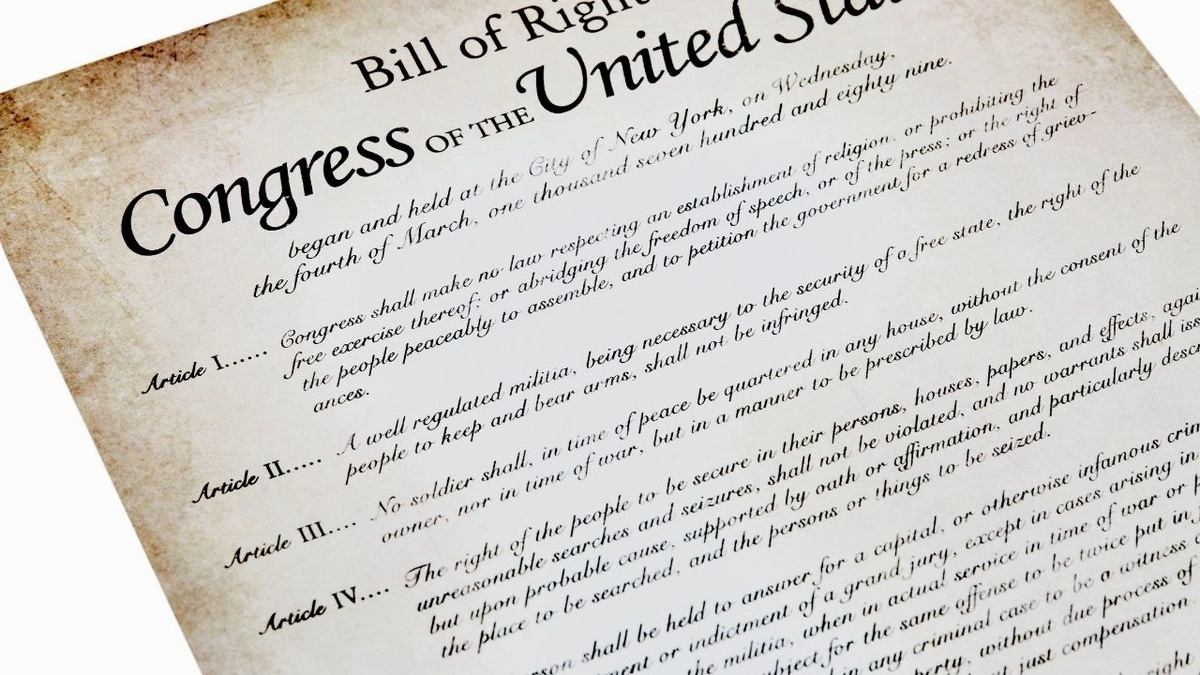 Bill of Right
Congress OF THE United Sta
began and held at the City of New York, on Wednesday,
the fourth of March, one thousand seven hundred and eighty nine.
Article I...... Congress shall make no law respecting an establishment of religion, or prohibiting the
free exercise thereof; or abridging the freedom of speech, or of the press; or the right of
the people peaceably to assemble, and to petition the government for a redress of griev-
ances.
Article II..... A well regulated militia, being necessary to the security of a free state, the right of the
people to keep and bear arms, shall not be infringed.
Article III.... No soldier shall, in time of peace be quartered in any house, without the consent of the
owner, nor in time of war, but in a manner to be prescribed by law.
Article IV.... The right of the people to be secure in their persons, houses, papers, and effects, agai
unreasonable searches and seizures, shall not be violated, and no warrants shall iss
but upon probable cause, supported by oath or affirmation, and particularly descr
the place to be searched, and the persons or things to be seized.
rson shall be held to answer for a capital, or otherwise infamous crim
ment or indictment of a grand jury, except in cases arising in
the militia, when in actual service in time of war or p
ubject for the same offense to be twice put in j
in any criminal case to be a witness
perty, without due process of
t just compensation.
right